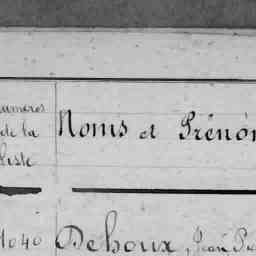 numéros
de la
liste
Noms et Prénom
1040 Dehoux, Jean